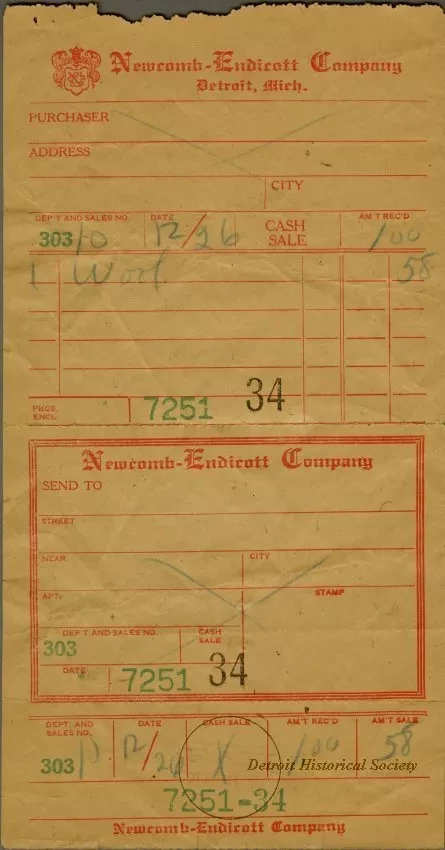 Newcomb-Endicott Company
Detroit, Mich.
PURCHASER
ADDRESS
CITY
DEP'T AND SALES NO. DATE CASH SALE AM'T REC'D
303 10 12/26 1 00
1 58
PKGS. ENCL. 7251 34
Newcomb-Endicott Company
SEND TO
STREET
NEAR CITY
APT. STAMP
DEP'T AND SALES NO. CASH SALE
303
DATE 7251 34
DEPT. AND SALES NO. DATE CASH SALE AM'T REC'D AM'T SALE
303 10 12/26 X 1 00 58
Detroit Historical Society
7251-34
Newcomb-Endicott Company